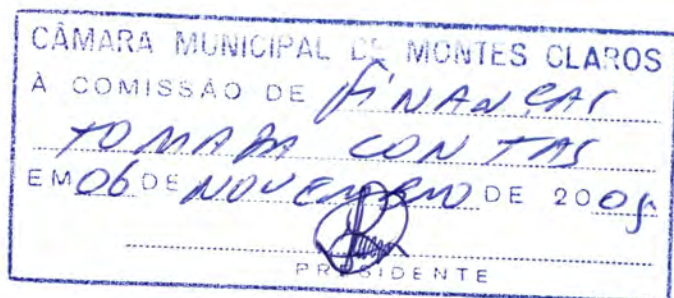 CÂMARA MUNICIPAL DE MONTES CLAROS
À COMISSÃO DE FINANÇAS
TOMADA CONTAS
EM 06 DE NOVEMBRO DE 2009
PRESIDENTE